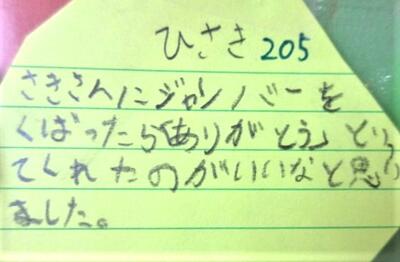 ひさき 205
さきさんにジャンバーを
くばったら「ありがとう」とい
てくれたのがいいなと思い
ました。